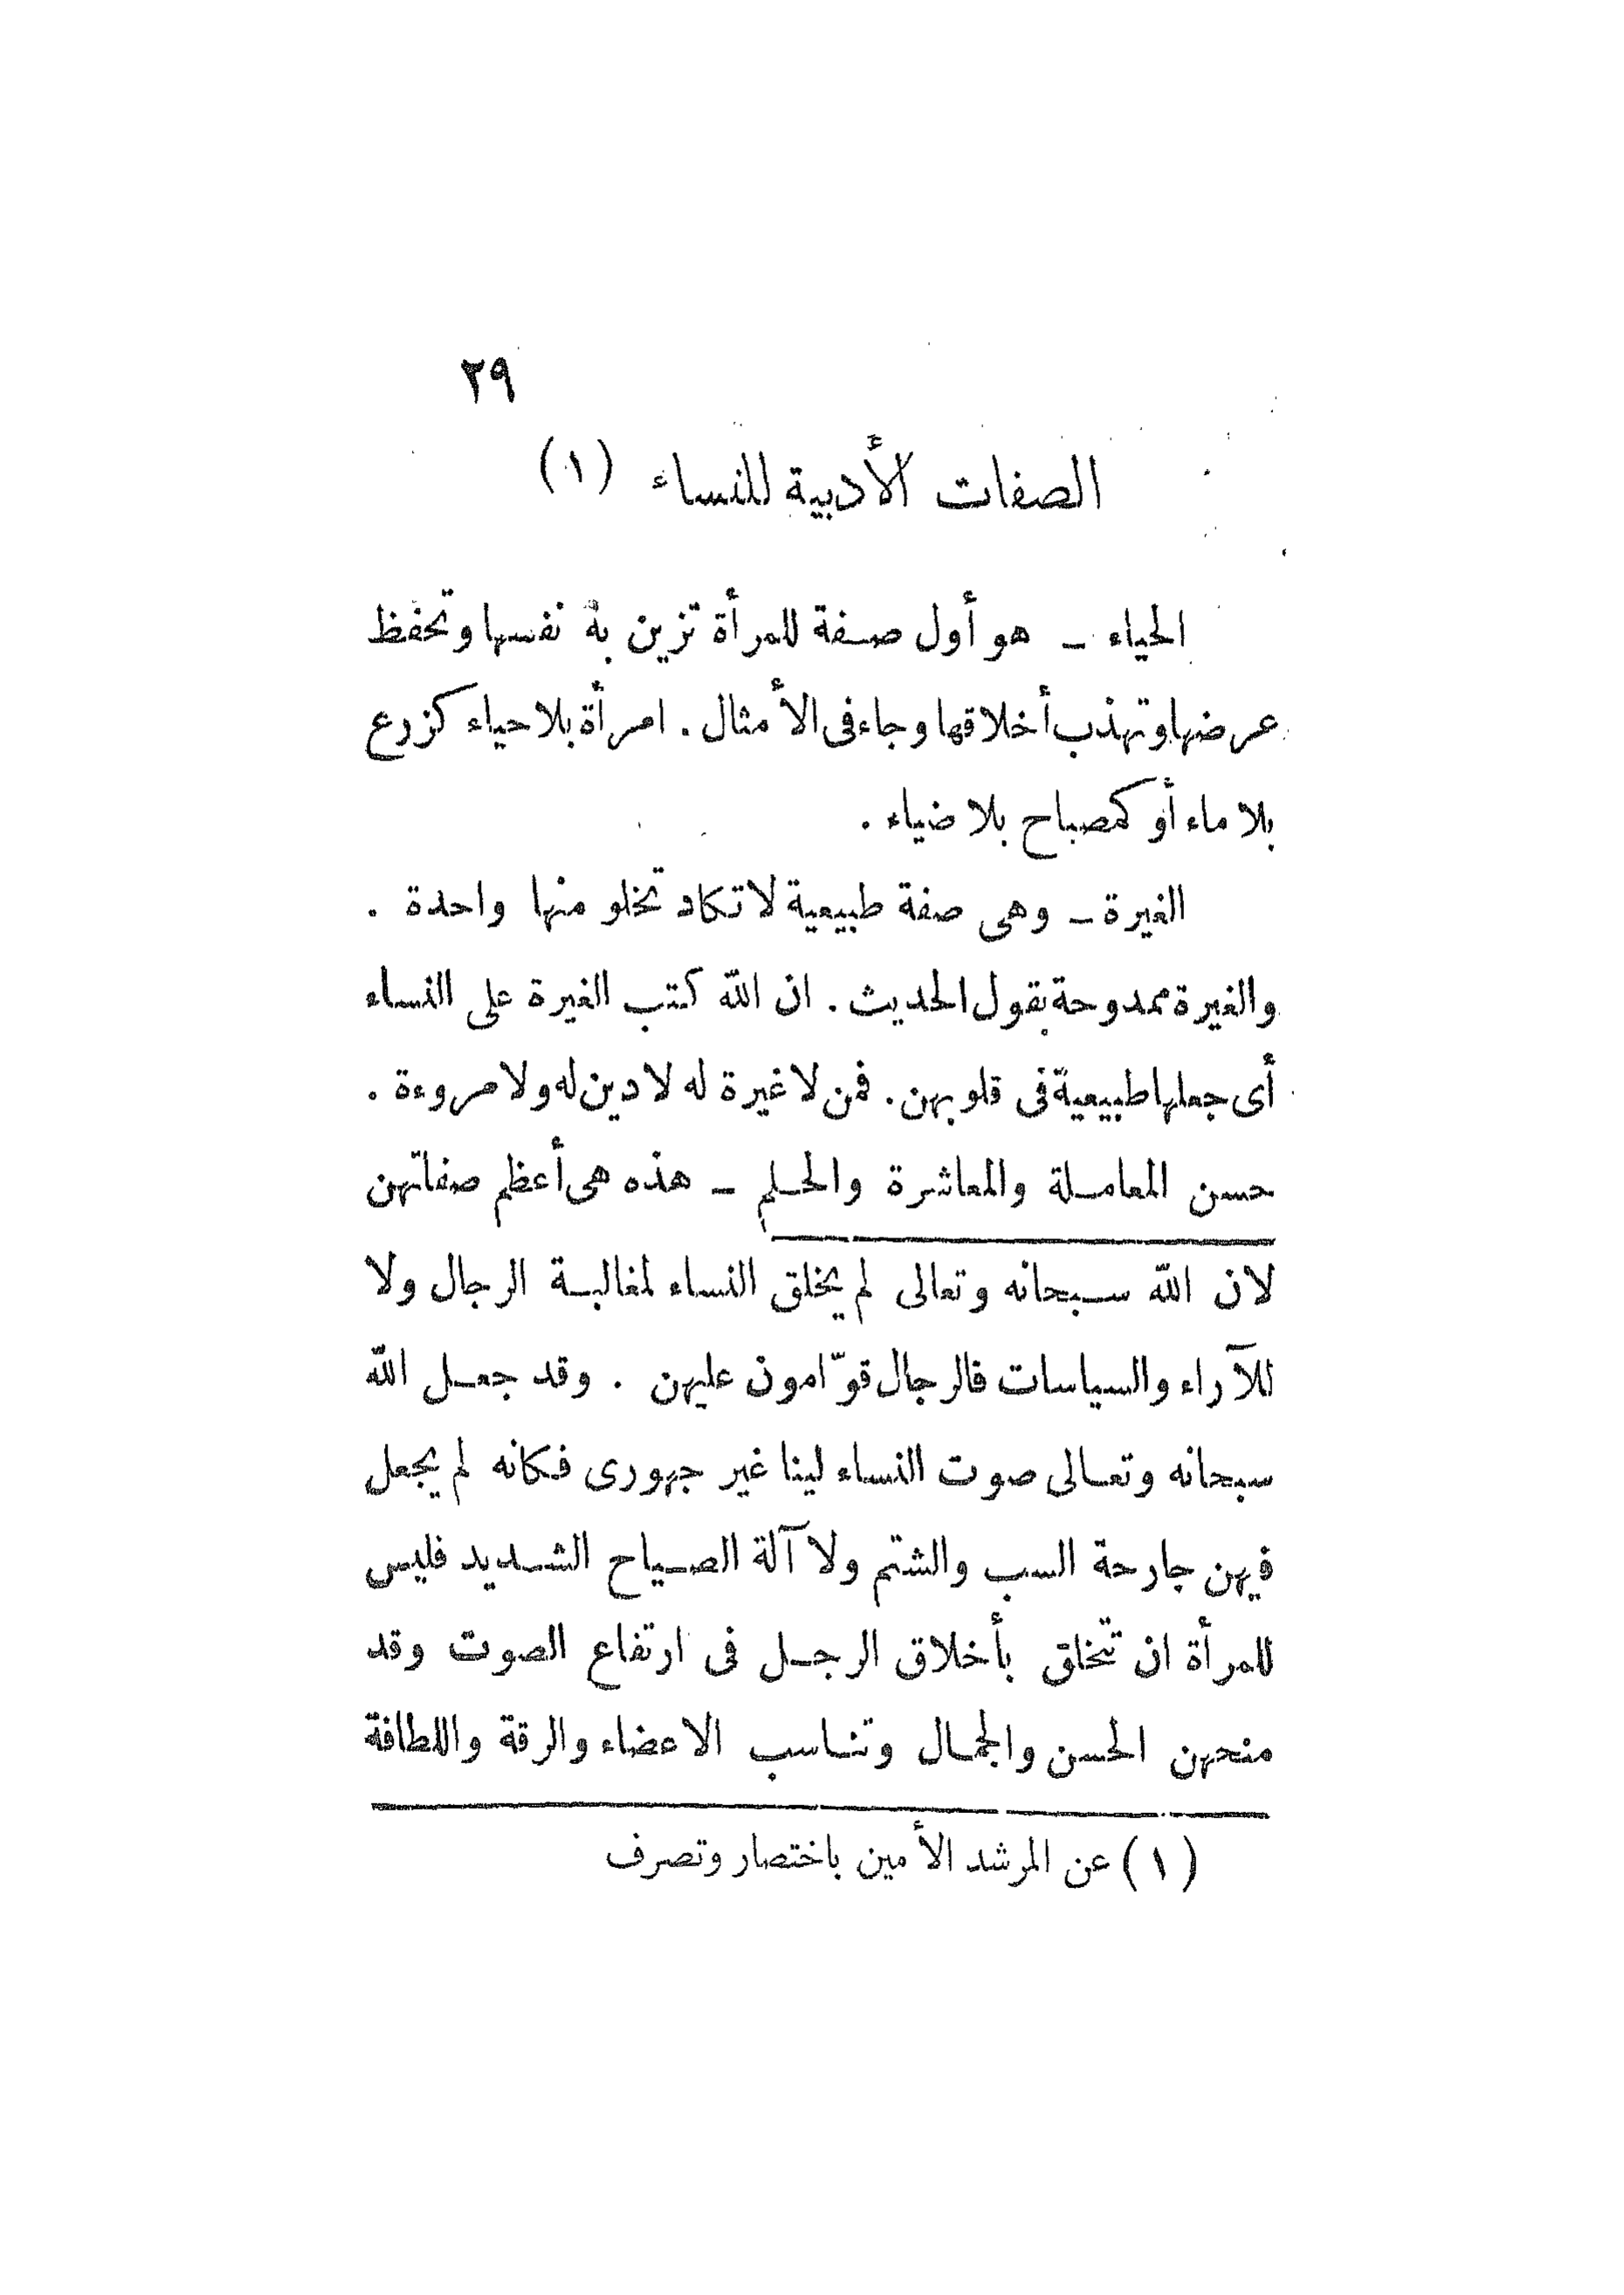 ٢٩
الصفات الأدبية للنساء (١)
الحياء – هو أول صفة للمرأة تزين به نفسها وتحفظ
عرضها وتهذب أخلاقها وجاء فى الأمثال . امرأة بلا حياء كزرع
بلا ماء أو كمصباح بلا ضياء .
الغيرة – وهى صفة طبيعية لا تكاد تخلو منها واحدة .
والغيرة ممدوحة بقول الحديث . ان الله كتب الغيرة على النساء
أى جعلها طبيعية فى قلوبهن . فمن لا غيرة له لا دين له ولا مروءة .
حسن المعاملة والمعاشرة والحلم – هذه هى أعظم صفاتهن
لان الله سبحانه وتعالى لم يخلق النساء لمغالبة الرجال ولا
للآراء والسياسات فالرجال قوّامون عليهن . وقد جعل الله
سبحانه وتعالى صوت النساء لينا غير جهورى فكانه لم يجعل
فيهن جارحة السب والشتم ولا آلة الصياح الشديد فليس
للمرأة ان تتخلق بأخلاق الرجل فى ارتفاع الصوت وقد
منحهن الحسن والجمال وتناسب الاعضاء والرقة واللطافة
(١) عن المرشد الأمين باختصار وتصرف